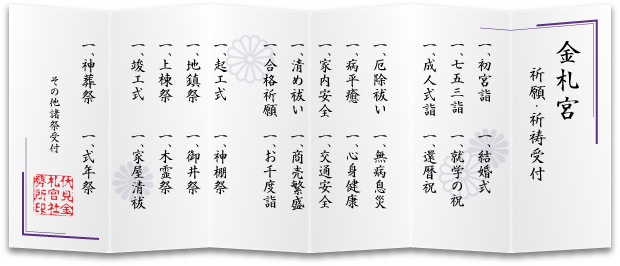 金札宮
祈願・祈祷受付
一、初宮詣 一、結婚式
一、七五三詣 一、就学の祝
一、成人式詣 一、還暦祝
一、厄除祓い 一、無病息災
一、病平癒 一、心身健康
一、家内安全 一、交通安全
一、清め祓い 一、商売繁盛
一、合格祈願 一、お千度詣
一、起工式 一、神棚祭
一、地鎮祭 一、御井祭
一、上棟祭 一、木霊祭
一、竣工式 一、家屋清祓
一、神葬祭 一、式年祭
その他諸祭受付
伏見金
札宮社
務所印